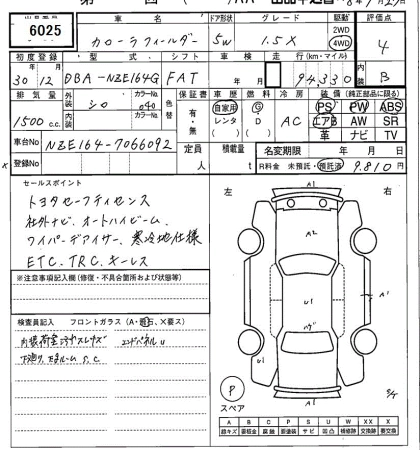 6025
車 名 ドア形状 グレード 駆動 評価点
カローラフィールダー 5W 1.5X 2WD 4WD 4
初度登録 型 式 シフト 車 検 走 行 (km・マイル) 内 装
30年12月 DBA-NZE164G FAT 年 月 94,330 B
排気量 外装 カラーNo. 色替 保証書 車歴 燃料 冷房 装 備 (純正部品に限る)
1500 c.c. シロ 040 有・無 自家用 レンタ ( ) G D ( ) AC PS PW ABS
内装 カラーNo. エアB AW SR
革 ナビ TV
車台No NZE164-7066092 定員 人 積載量 t 名変期限 年 月 日
登録No R料金 未預託・預託済 9,810 円
セールスポイント
トヨタセーフティセンス
社外ナビ、オートハイビーム
ワイパーデアイサー、寒冷地仕様
ETC、TRC、キーレス
※注意事項記入欄(修復・不具合箇所および状態等)
検査員記入 フロントガラス(A・飛石、X要ス)
内装荷室汚レスレキズ エンドパネルU
下廻り、エンジンルームS、C
左 右
A1
A2
U1
A1
U1
A1
P
スペア
A B C P S U W X XX
線キズ 要板金 腐蝕 要塗装 サビ 凹凸 補修跡 交換跡 要交換